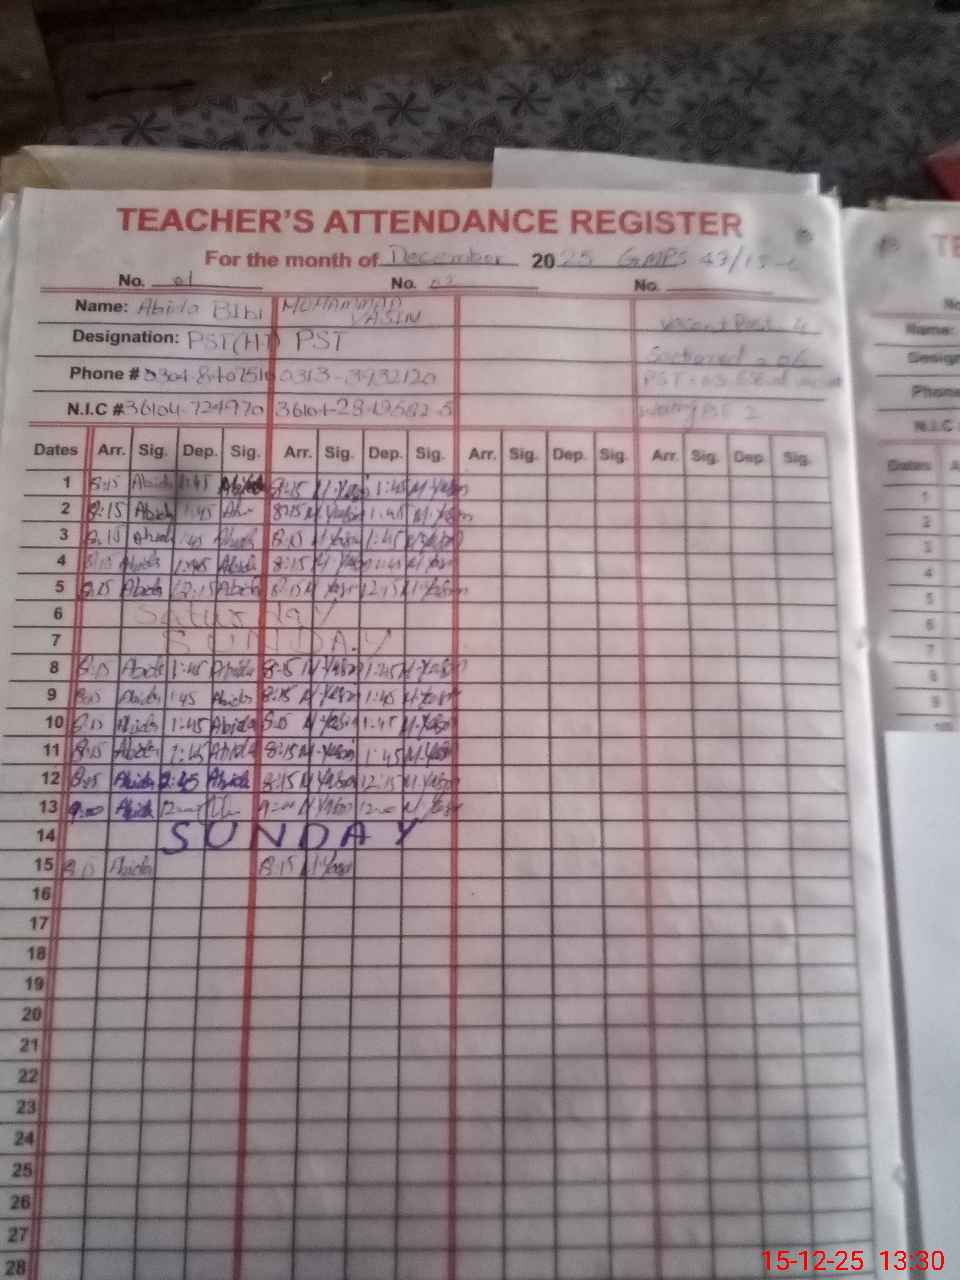 TEACHER'S ATTENDANCE REGISTER
For the month of December 2025 GMPS 43/15-L
No. 01 No. 02 No.
Name: Abida BIBI MUHAMMAD YASIN
Designation: PST(HT) PST
Vacant Post = 4
Phone # 0313-3932120
Sanctioned = 06
N.I.C #
Working PST 2
Dates Arr. Sig. Dep. Sig. Arr. Sig. Dep. Sig. Arr. Sig. Dep. Sig. Arr. Sig. Dep. Sig.
1 8:15 Abida 1:45 Abida 8:15 M.Yasin 1:45 M.Yasin
2 8:15 Abida 1:45 8:15 M.Yasin 1:45 M.Yasin
3 8:15 Abida 1:45 Abida 8:15 M.Yasin 1:45 M.Yasin
4 8:15 Abida 1:45 Abida 8:15 M.Yasin 1:45 M.Yasin
5 8:15 Abida 12:15 Abida 8:15 M.Yasin 12:15 M.Yasin
6 Saturday
7 SUNDAY
8 8:15 Abida 1:45 Abida 8:15 M.Yasin 1:45 M.Yasin
9 8:15 Abida 1:45 Abida 8:15 M.Yasin 1:45 M.Yasin
10 8:15 Abida 1:45 Abida 8:15 M.Yasin 1:45 M.Yasin
11 8:15 Abida 1:45 Abida 8:15 M.Yasin 1:45 M.Yasin
12 8:15 Abida Abida 8:15 M.Yasin 12:15 M.Yasin
13 9:00 Abida 12:00 9:00 M.Yasin 12:00 M.Yasin
14 SUNDAY
15 8:15 Abida 8:15 M.Yasin
16
17
18
19
20
21
22
23
24
25
26
27
28
TE
No
Name:
Design
Phone
N.I.C
Dates A
1
2
3
4
5
6
7
8
9
10
15-12-25 13:30